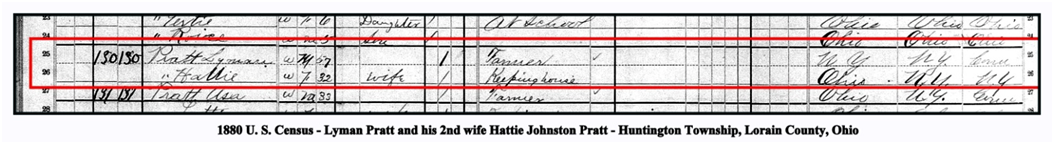 23 " Vertie W F 6 Daughter / At School Ohio Ohio Ohio
24 " W M 3 Son / Ohio Ohio Ohio
25 130 130 Pratt Lyman W M 57 1 Farmer N Y N Y Conn
26 " Hattie W F 32 Wife 1 Keeping house Ohio N.Y. N Y
27 131 131 Pratt Asa W M 33 1 Farmer Ohio N.Y. Conn
28
1880 U. S. Census - Lyman Pratt and his 2nd wife Hattie Johnston Pratt - Huntington Township, Lorain County, Ohio